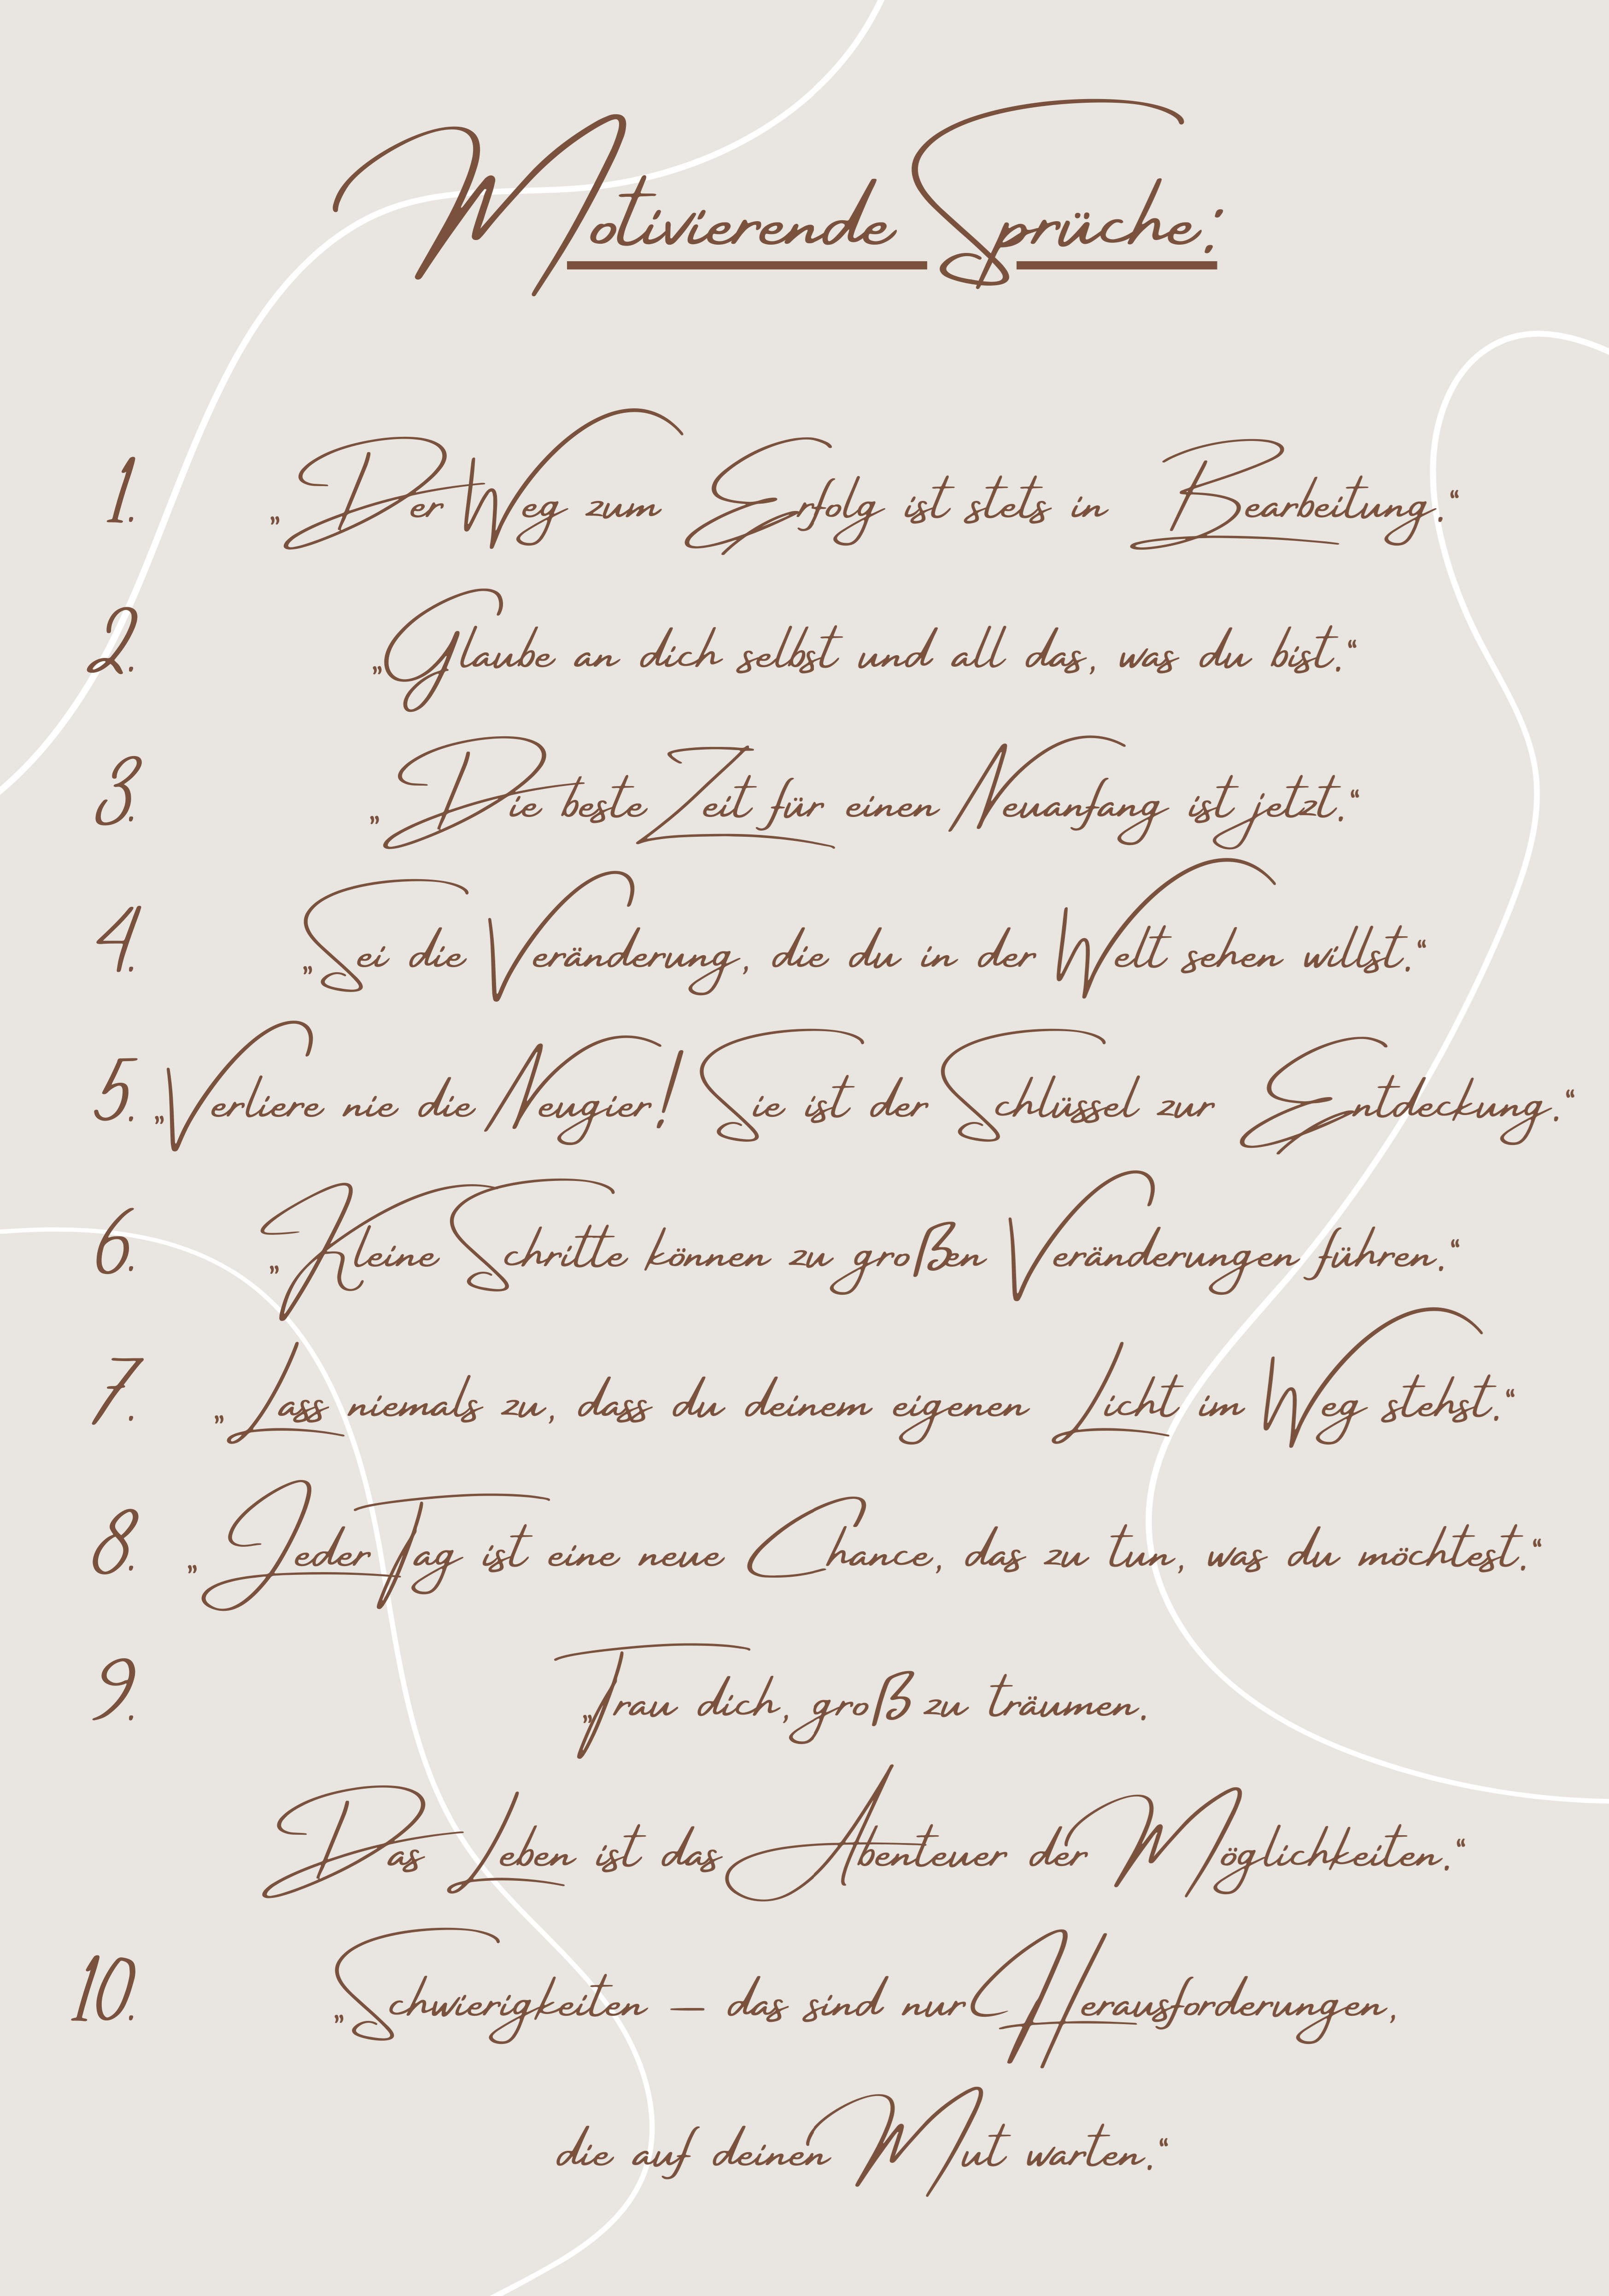 Motivierende Sprüche:
1. „Der Weg zum Erfolg ist stets in Bearbeitung.“
2. „Glaube an dich selbst und all das, was du bist.“
3. „Die beste Zeit für einen Neuanfang ist jetzt.“
4. „Sei die Veränderung, die du in der Welt sehen willst.“
5. „Verliere nie die Neugier! Sie ist der Schlüssel zur Entdeckung.“
6. „Kleine Schritte können zu großen Veränderungen führen.“
7. „Lass niemals zu, dass du deinem eigenen Licht im Weg stehst.“
8. „Jeder Tag ist eine neue Chance, das zu tun, was du möchtest.“
9. „Trau dich, groß zu träumen.
Das Leben ist das Abenteuer der Möglichkeiten.“
10. „Schwierigkeiten – das sind nur Herausforderungen,
die auf deinen Mut warten.“